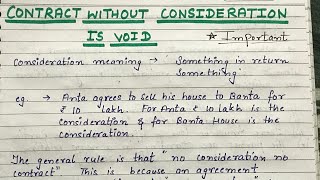 CONTRACT WITHOUT CONSIDERATION
IS VOID
★ Important
Consideration meaning → Something in return
Something.
eg. → Anta agrees to sell his house to Banta for
₹ 10 lakh. For Anta ₹ 10 lakh is the
Consideration & for Banta House is the
Consideration.
The general rule is that "no consideration no
contract" This is because an agreement